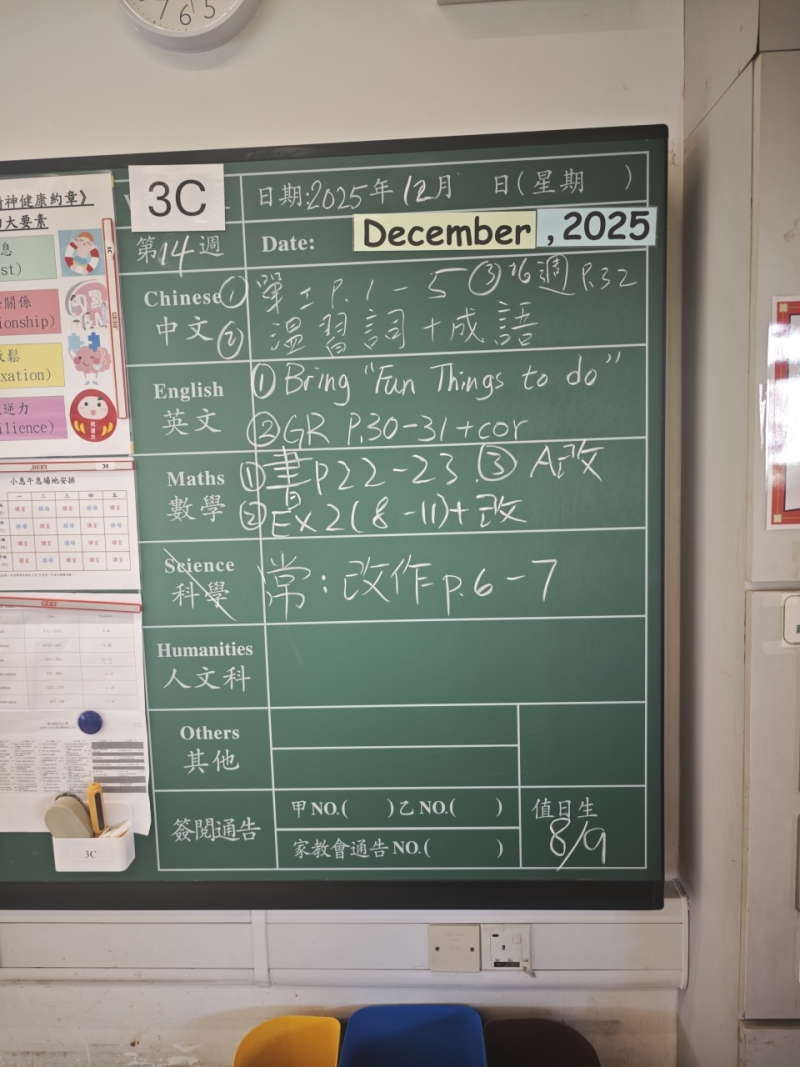 7 6 5
神健康約章》
大要素
3C
日期:2025年12月 日(星期 )
第14週
Date: December , 2025
Chinese ① 單工 P.1-5 ③ 16週 P.32
中文 ② 溫習詞+成語
English ① Bring "Fun Things to do"
英文 ② GR P.30-31+cor
Maths ① 書p22-23 ③ A改
數學 ② Ex2(8-11)+改
Science
科學
常:改作p.6-7
Humanities
人文科
Others
其他
簽閱通告
甲NO.( )乙NO.( )
家教會通告NO.( )
值日生
8/9
息
關係
ionship)
鬆
xation)
逆力
ilience)
小息午息場地安排
一 二 三 四 五
3C